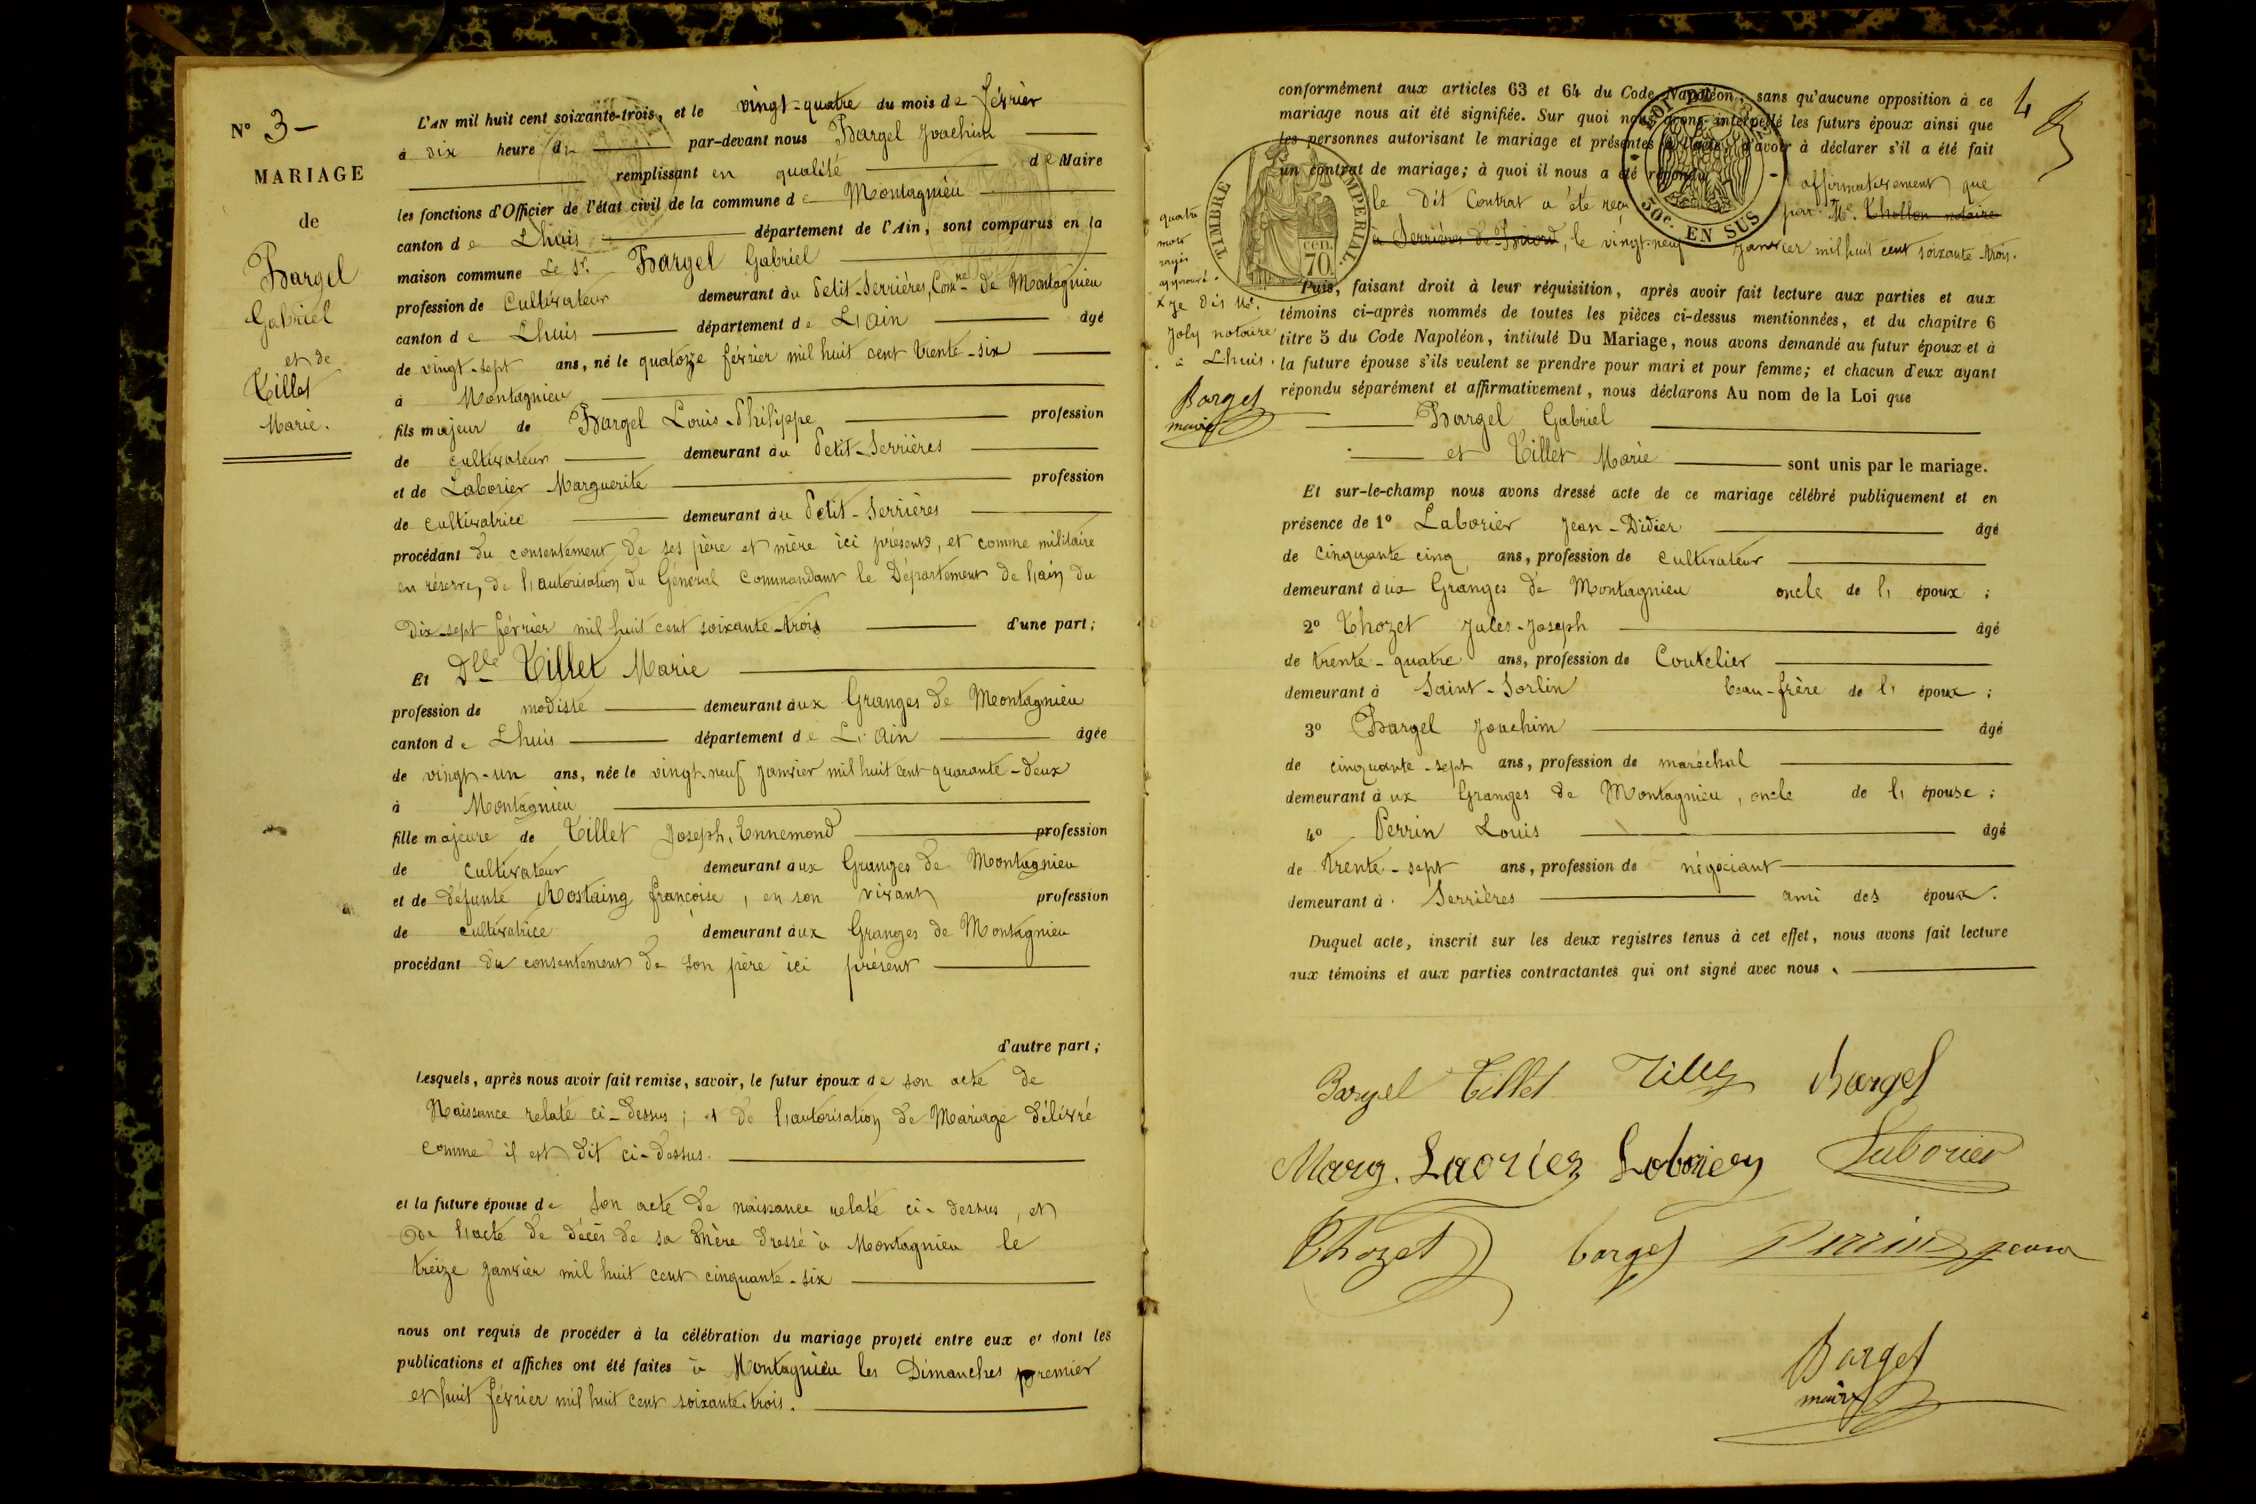 N° 3 -
MARIAGE
de
Bargel
Gabriel
et de
Tillet
Marie.
L'AN mil huit cent soixante-trois, et le vingt-quatre du mois de février
à dix heure du par-devant nous Bargel Joachim
remplissant en qualité de Maire
les fonctions d'Officier de l'état civil de la commune de Montagnieu
canton de Lhuis département de l'Ain, sont comparus en la
maison commune Le Sr. Bargel Gabriel
profession de Cultivateur demeurant au Petit-Serrières, Comne de Montagnieu
canton de Lhuis département de L'Ain âgé
de vingt-sept ans, né le quatorze février mil huit cent trente-six
à Montagnieu
fils majeur de Bargel Louis-Philippe profession
de cultivateur demeurant au Petit-Serrières
et de Laborier Marguerite profession
de cultivatrice demeurant au Petit-Serrières
procédant du consentement de ses père et mère ici présents, et comme militaire
en réserve, de l'autorisation du Général Commandant le Département de l'ain du
Dix-sept février mil huit cent soixante-trois d'une part;
Et Dlle Tillet Marie
profession de modiste demeurant aux Granges de Montagnieu
canton de Lhuis département de L'Ain âgée
de vingt-un ans, née le vingt-neuf janvier mil huit cent quarante-deux
à Montagnieu
fille majeure de Tillet Joseph, Ennemond profession
de cultivateur demeurant aux Granges de Montagnieu
et de défunte Rostaing françoise, en son vivant profession
de cultivatrice demeurant aux Granges de Montagnieu
procédant du consentement de son père ici présent
d'autre part;
Lesquels, après nous avoir fait remise, savoir, le futur époux de son acte de
Naissance relaté ci-dessus; et de l'autorisation de Mariage délivré
comme il est dit ci-dessus.
et la future épouse de son acte de naissance relaté ci-dessus, et
de l'acte de décès de sa mère dressé à Montagnieu le
treize janvier mil huit cent cinquante-six
nous ont requis de procéder à la célébration du mariage projeté entre eux et dont les
publications et affiches ont été faites à Montagnieu les Dimanches premier
et huit février mil huit cent soixante-trois.
4
conformément aux articles 63 et 64 du Code Napoléon; sans qu'aucune opposition à ce
mariage nous ait été signifiée. Sur quoi nous avons interpellé les futurs époux ainsi que
les personnes autorisant le mariage et présentes à l'acte, d'avoir à déclarer s'il a été fait
un contrat de mariage; à quoi il nous a été répondu affirmativement que
le dit Contrat a été reçu par Me. Thollon notaire
à Serrières de Briord, le vingt-neuf janvier mil huit cent soixante-trois.
TIMBRE IMPERIAL
cen. 70
50c. EN SUS
quatre
mots
rayés
approuvé.
x je dis Me.
Joly notaire
à Lhuis.
Bargel
maire
Puis, faisant droit à leur réquisition, après avoir fait lecture aux parties et aux
témoins ci-après nommés de toutes les pièces ci-dessus mentionnées, et du chapitre 6
titre 5 du Code Napoléon, intitulé Du Mariage, nous avons demandé au futur époux et à
la future épouse s'ils veulent se prendre pour mari et pour femme; et chacun d'eux ayant
répondu séparément et affirmativement, nous déclarons Au nom de la Loi que
Bargel Gabriel
et Tillet Marie sont unis par le mariage.
Et sur-le-champ nous avons dressé acte de ce mariage célébré publiquement et en
présence de 1° Laborier Jean-Didier âgé
de cinquante cinq ans, profession de cultivateur
demeurant aux Granges de Montagnieu oncle de l'époux;
2° Thozet Jules-Joseph âgé
de trente-quatre ans, profession de Coutelier
demeurant à Saint-Sorlin beau-frère de l'époux;
3° Bargel Joachim âgé
de cinquante-sept ans, profession de maréchal
demeurant aux Granges de Montagnieu, oncle de l'épouse;
4° Perrin Louis âgé
de trente-sept ans, profession de négociant
demeurant à Serrières ami des époux.
Duquel acte, inscrit sur les deux registres tenus à cet effet, nous avons fait lecture
aux témoins et aux parties contractantes qui ont signé avec nous.
Bargel Tillet Tillet Bargel
Marg. Laorier Laborier Laborier
Thozet bargel Perrin
Bargel
maire